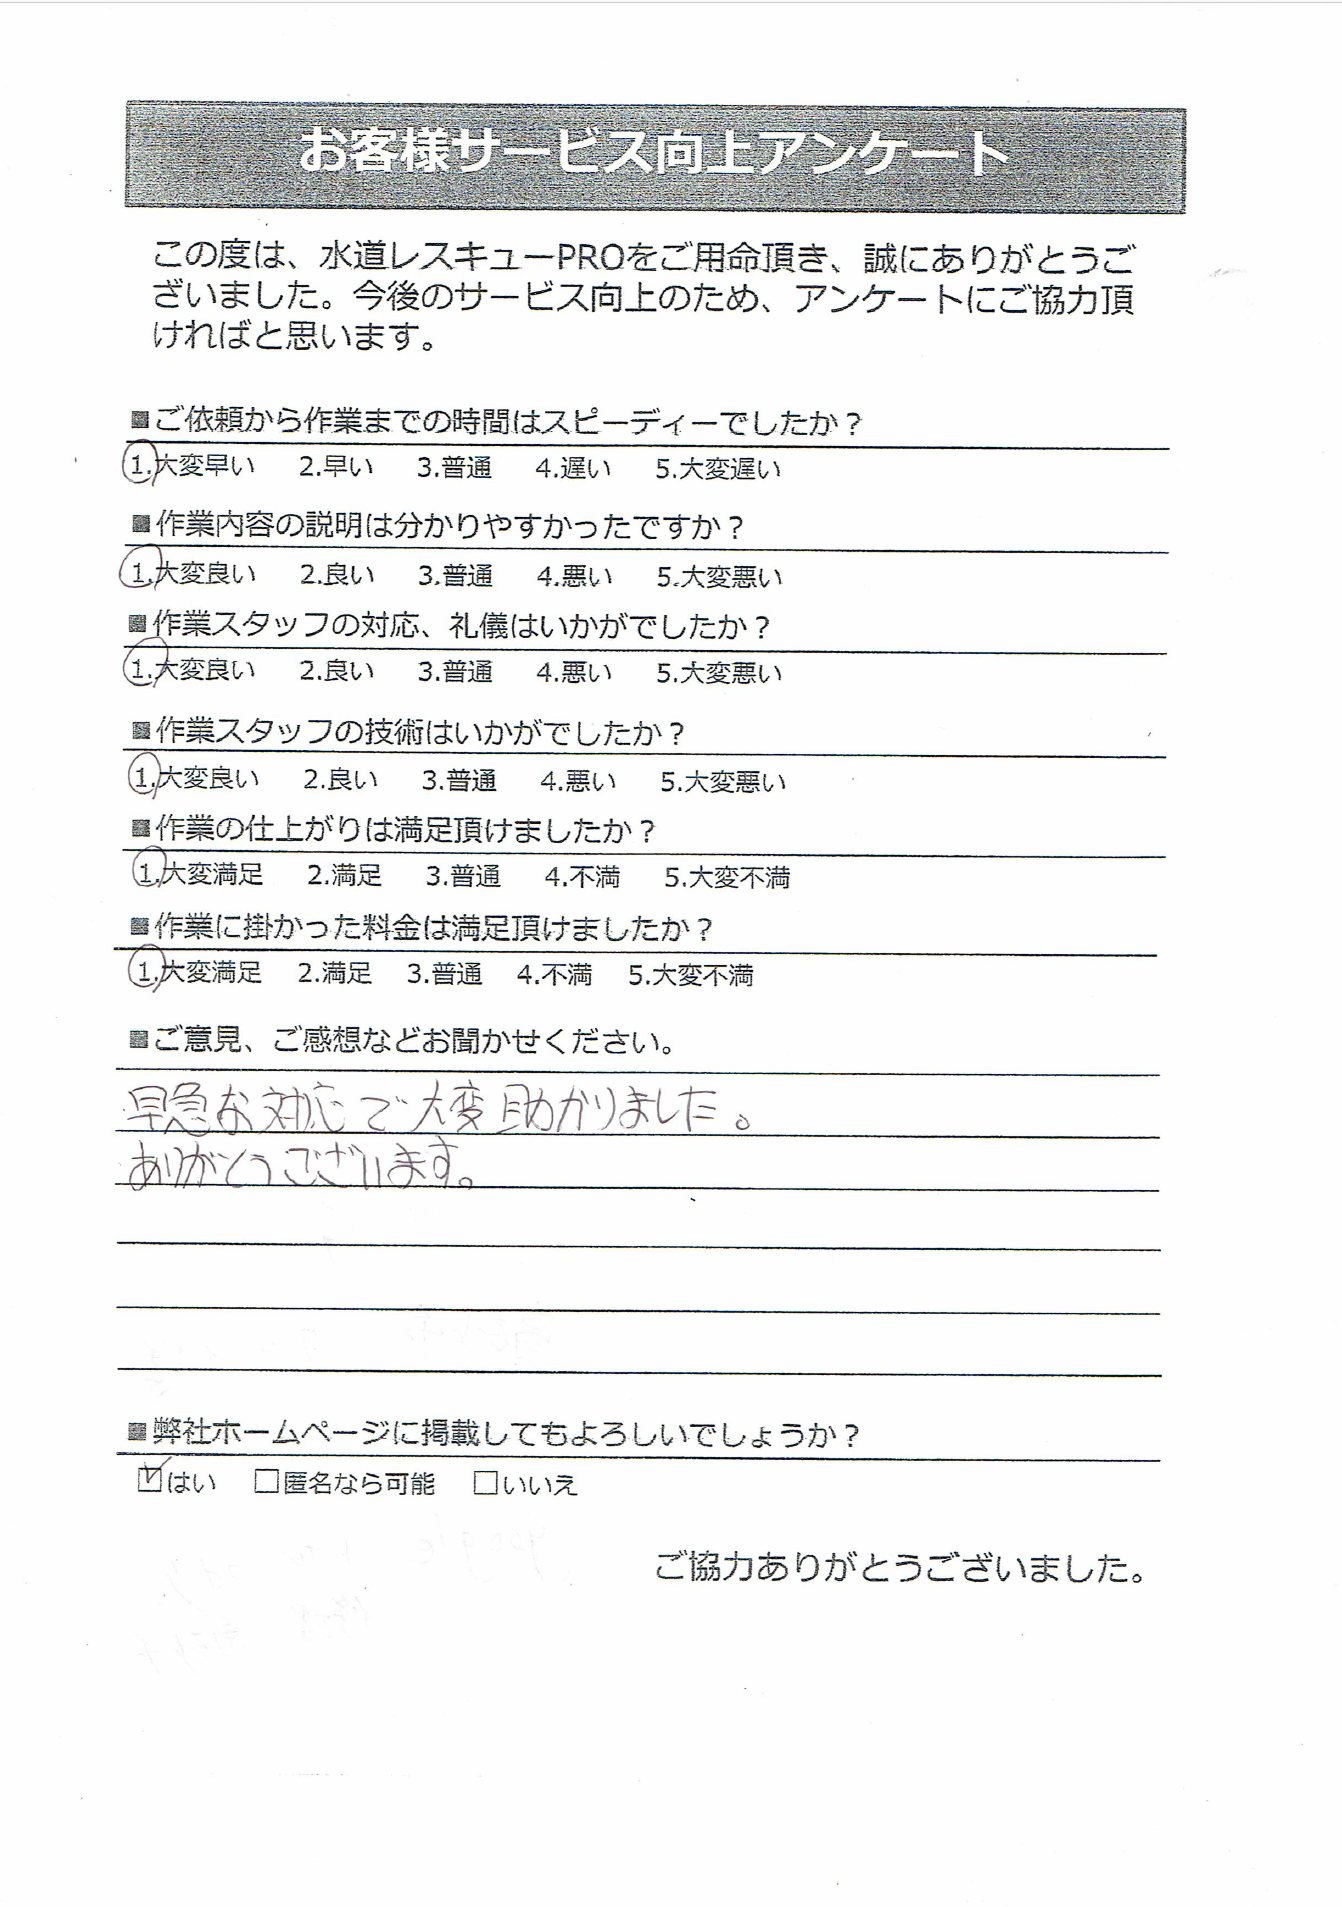 お客様サービス向上アンケート
この度は、水道レスキューPROをご用命頂き、誠にありがとうご
ざいました。今後のサービス向上のため、アンケートにご協力頂
ければと思います。
■ご依頼から作業までの時間はスピーディーでしたか？
1.大変早い 2.早い 3.普通 4.遅い 5.大変遅い
■作業内容の説明は分かりやすかったですか？
1.大変良い 2.良い 3.普通 4.悪い 5.大変悪い
■作業スタッフの対応、礼儀はいかがでしたか？
1.大変良い 2.良い 3.普通 4.悪い 5.大変悪い
■作業スタッフの技術はいかがでしたか？
1.大変良い 2.良い 3.普通 4.悪い 5.大変悪い
■作業の仕上がりは満足頂けましたか？
1.大変満足 2.満足 3.普通 4.不満 5.大変不満
■作業に掛かった料金は満足頂けましたか？
1.大変満足 2.満足 3.普通 4.不満 5.大変不満
■ご意見、ご感想などお聞かせください。
早急な対応で大変助かりました。
ありがとうございます。
■弊社ホームページに掲載してもよろしいでしょうか？
☑はい □匿名なら可能 □いいえ
ご協力ありがとうございました。